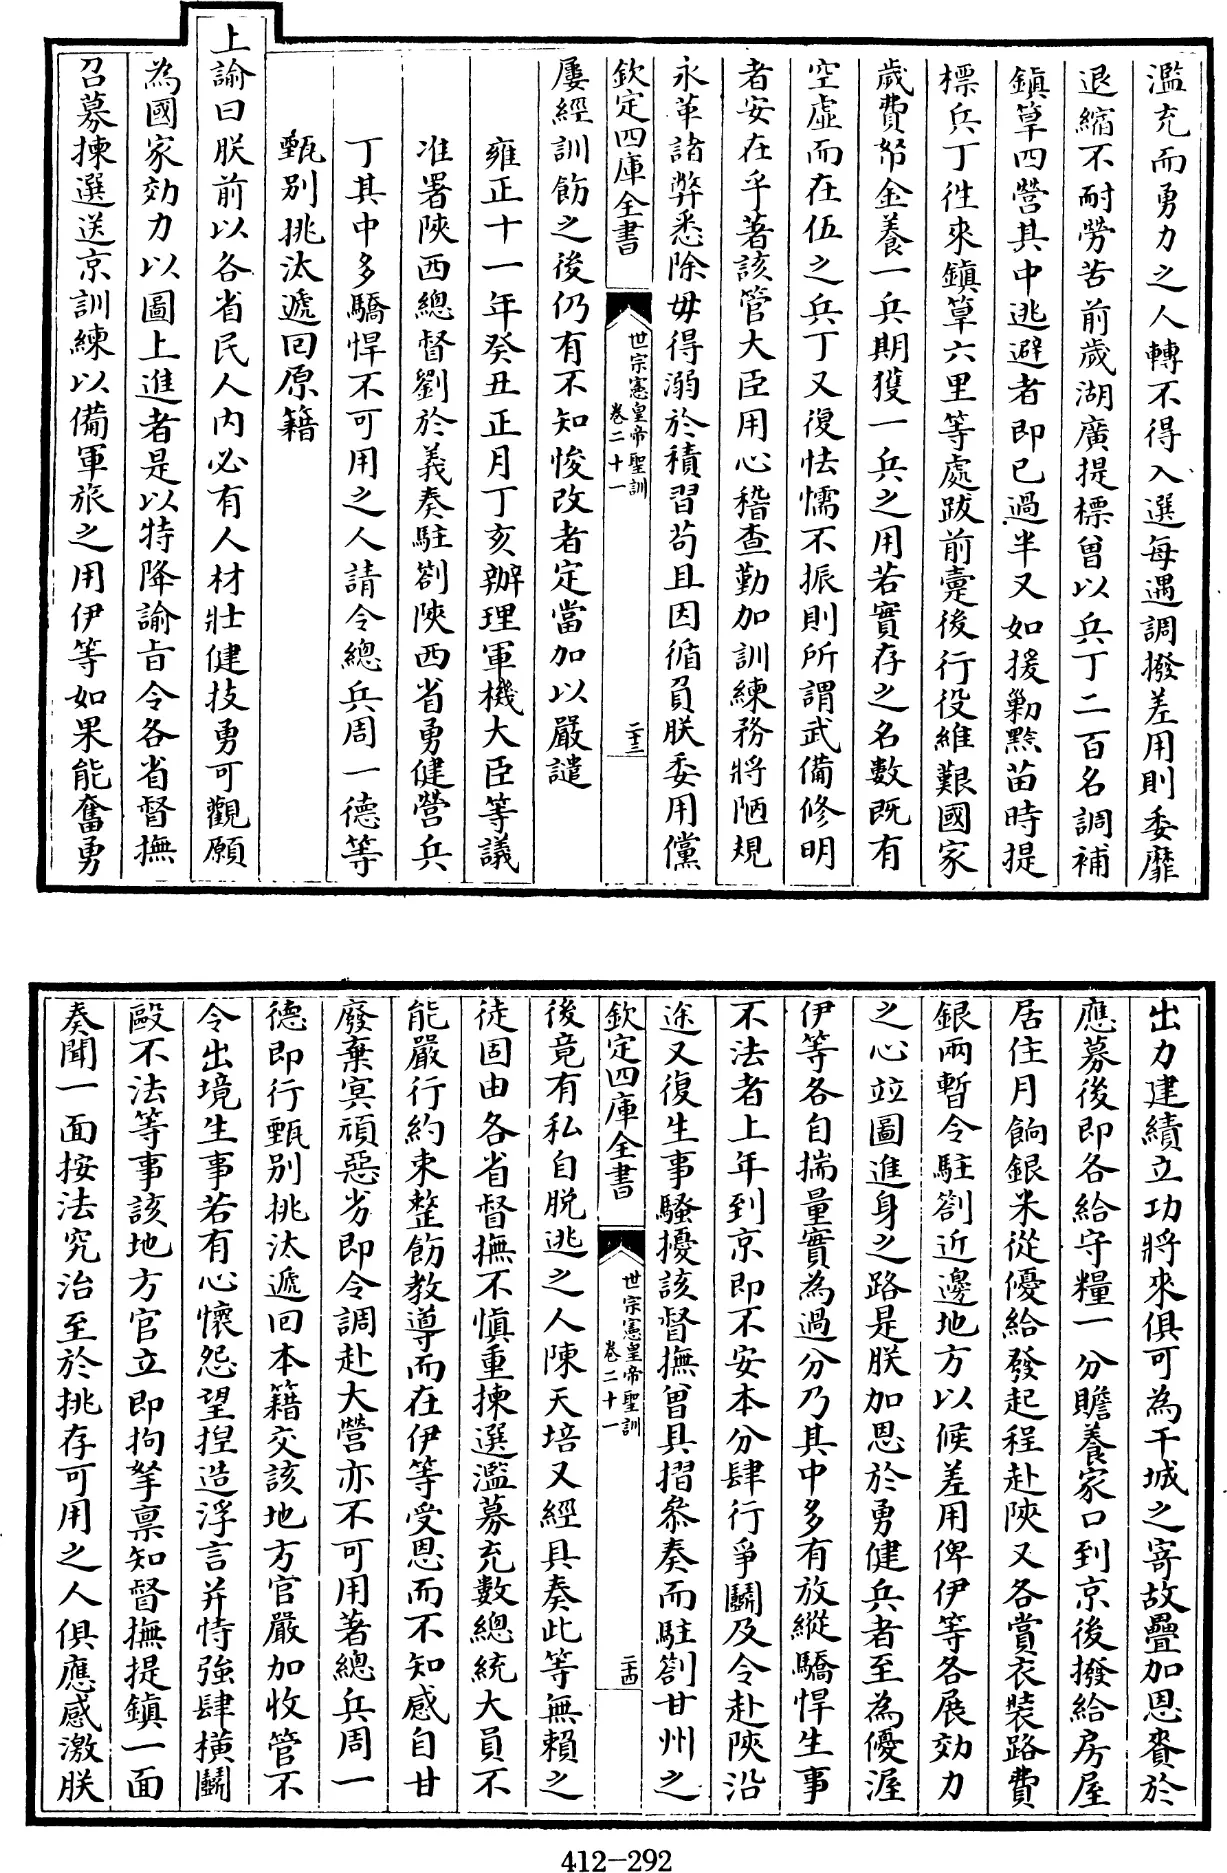 濫充而勇力之人轉不得入選每遇調撥差用則委靡
退縮不耐勞苦前歲湖廣提標曾以兵丁二百名調補
鎮筸四營其中逃避者即已過半又如援勦黔苗時提
標兵丁徃來鎮筸六里等處跋前疐後行役維艱國家
歲費帑金養一兵期獲一兵之用若實存之名數既有
空虛而在伍之兵丁又復怯懦不振則所謂武備修明
者安在乎著該管大臣用心稽查勤加訓練務將陋規
永革諸弊悉除毋得溺於積習苟且因循負朕委用儻
欽定四庫全書
世宗憲皇帝聖訓
卷二十一
二十三
屢經訓飭之後仍有不知悛改者定當加以嚴譴
雍正十一年癸丑正月丁亥辦理軍機大臣等議
准署陜西總督劉於義奏駐劄陜西省勇健營兵
丁其中多驕悍不可用之人請令總兵周一德等
甄别挑汰遞回原籍
上諭曰朕前以各省民人内必有人材壯健技勇可觀願
為國家効力以圖上進者是以特降諭㫖令各省督撫
召募揀選送京訓練以備軍旅之用伊等如果能奮勇
出力建績立功將來俱可為干城之寄故疊加恩賚於
應募後即各給守糧一分贍養家口到京後撥給房屋
居住月餉銀米從優給發起程赴陜又各賞衣裝路費
銀兩暫令駐劄近邊地方以候差用俾伊等各展効力
之心竝圖進身之路是朕加恩於勇健兵者至為優渥
伊等各自揣量實為過分乃其中多有放縱驕悍生事
不法者上年到京即不安本分肆行爭鬭及令赴陜沿
途又復生事騷擾該督撫曾具摺叅奏而駐劄甘州之
欽定四庫全書
世宗憲皇帝聖訓
卷二十一
二十四
後竟有私自脱逃之人陳天培又經具奏此等無賴之
徒固由各省督撫不慎重揀選濫募充數總統大員不
能嚴行約束整飭教導而在伊等受恩而不知感自甘
廢棄冥頑惡劣即令調赴大營亦不可用著總兵周一
德即行甄别挑汰遞回本籍交該地方官嚴加收管不
令出境生事若有心懷怨望揑造浮言并恃強肆横鬭
毆不法等事該地方官立即拘拏禀知督撫提鎮一面
奏聞一面按法究治至於挑存可用之人俱應感激朕
412-292